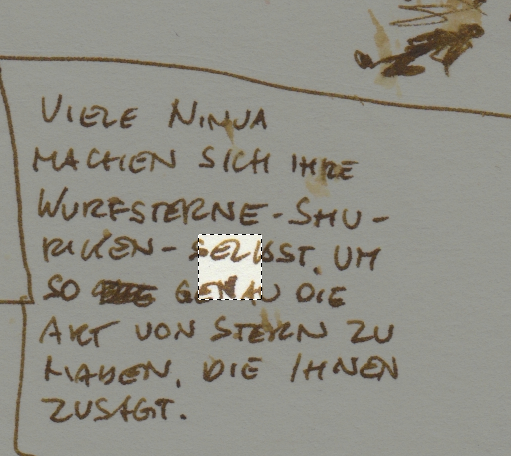 VIELE NINJA
MACHEN SICH IHRE
WURFSTERNE-SHU-
RIKEN-SELBST, UM
SO GENAU DIE
ART VON STERN ZU
HABEN, DIE IHNEN
ZUSAGT.